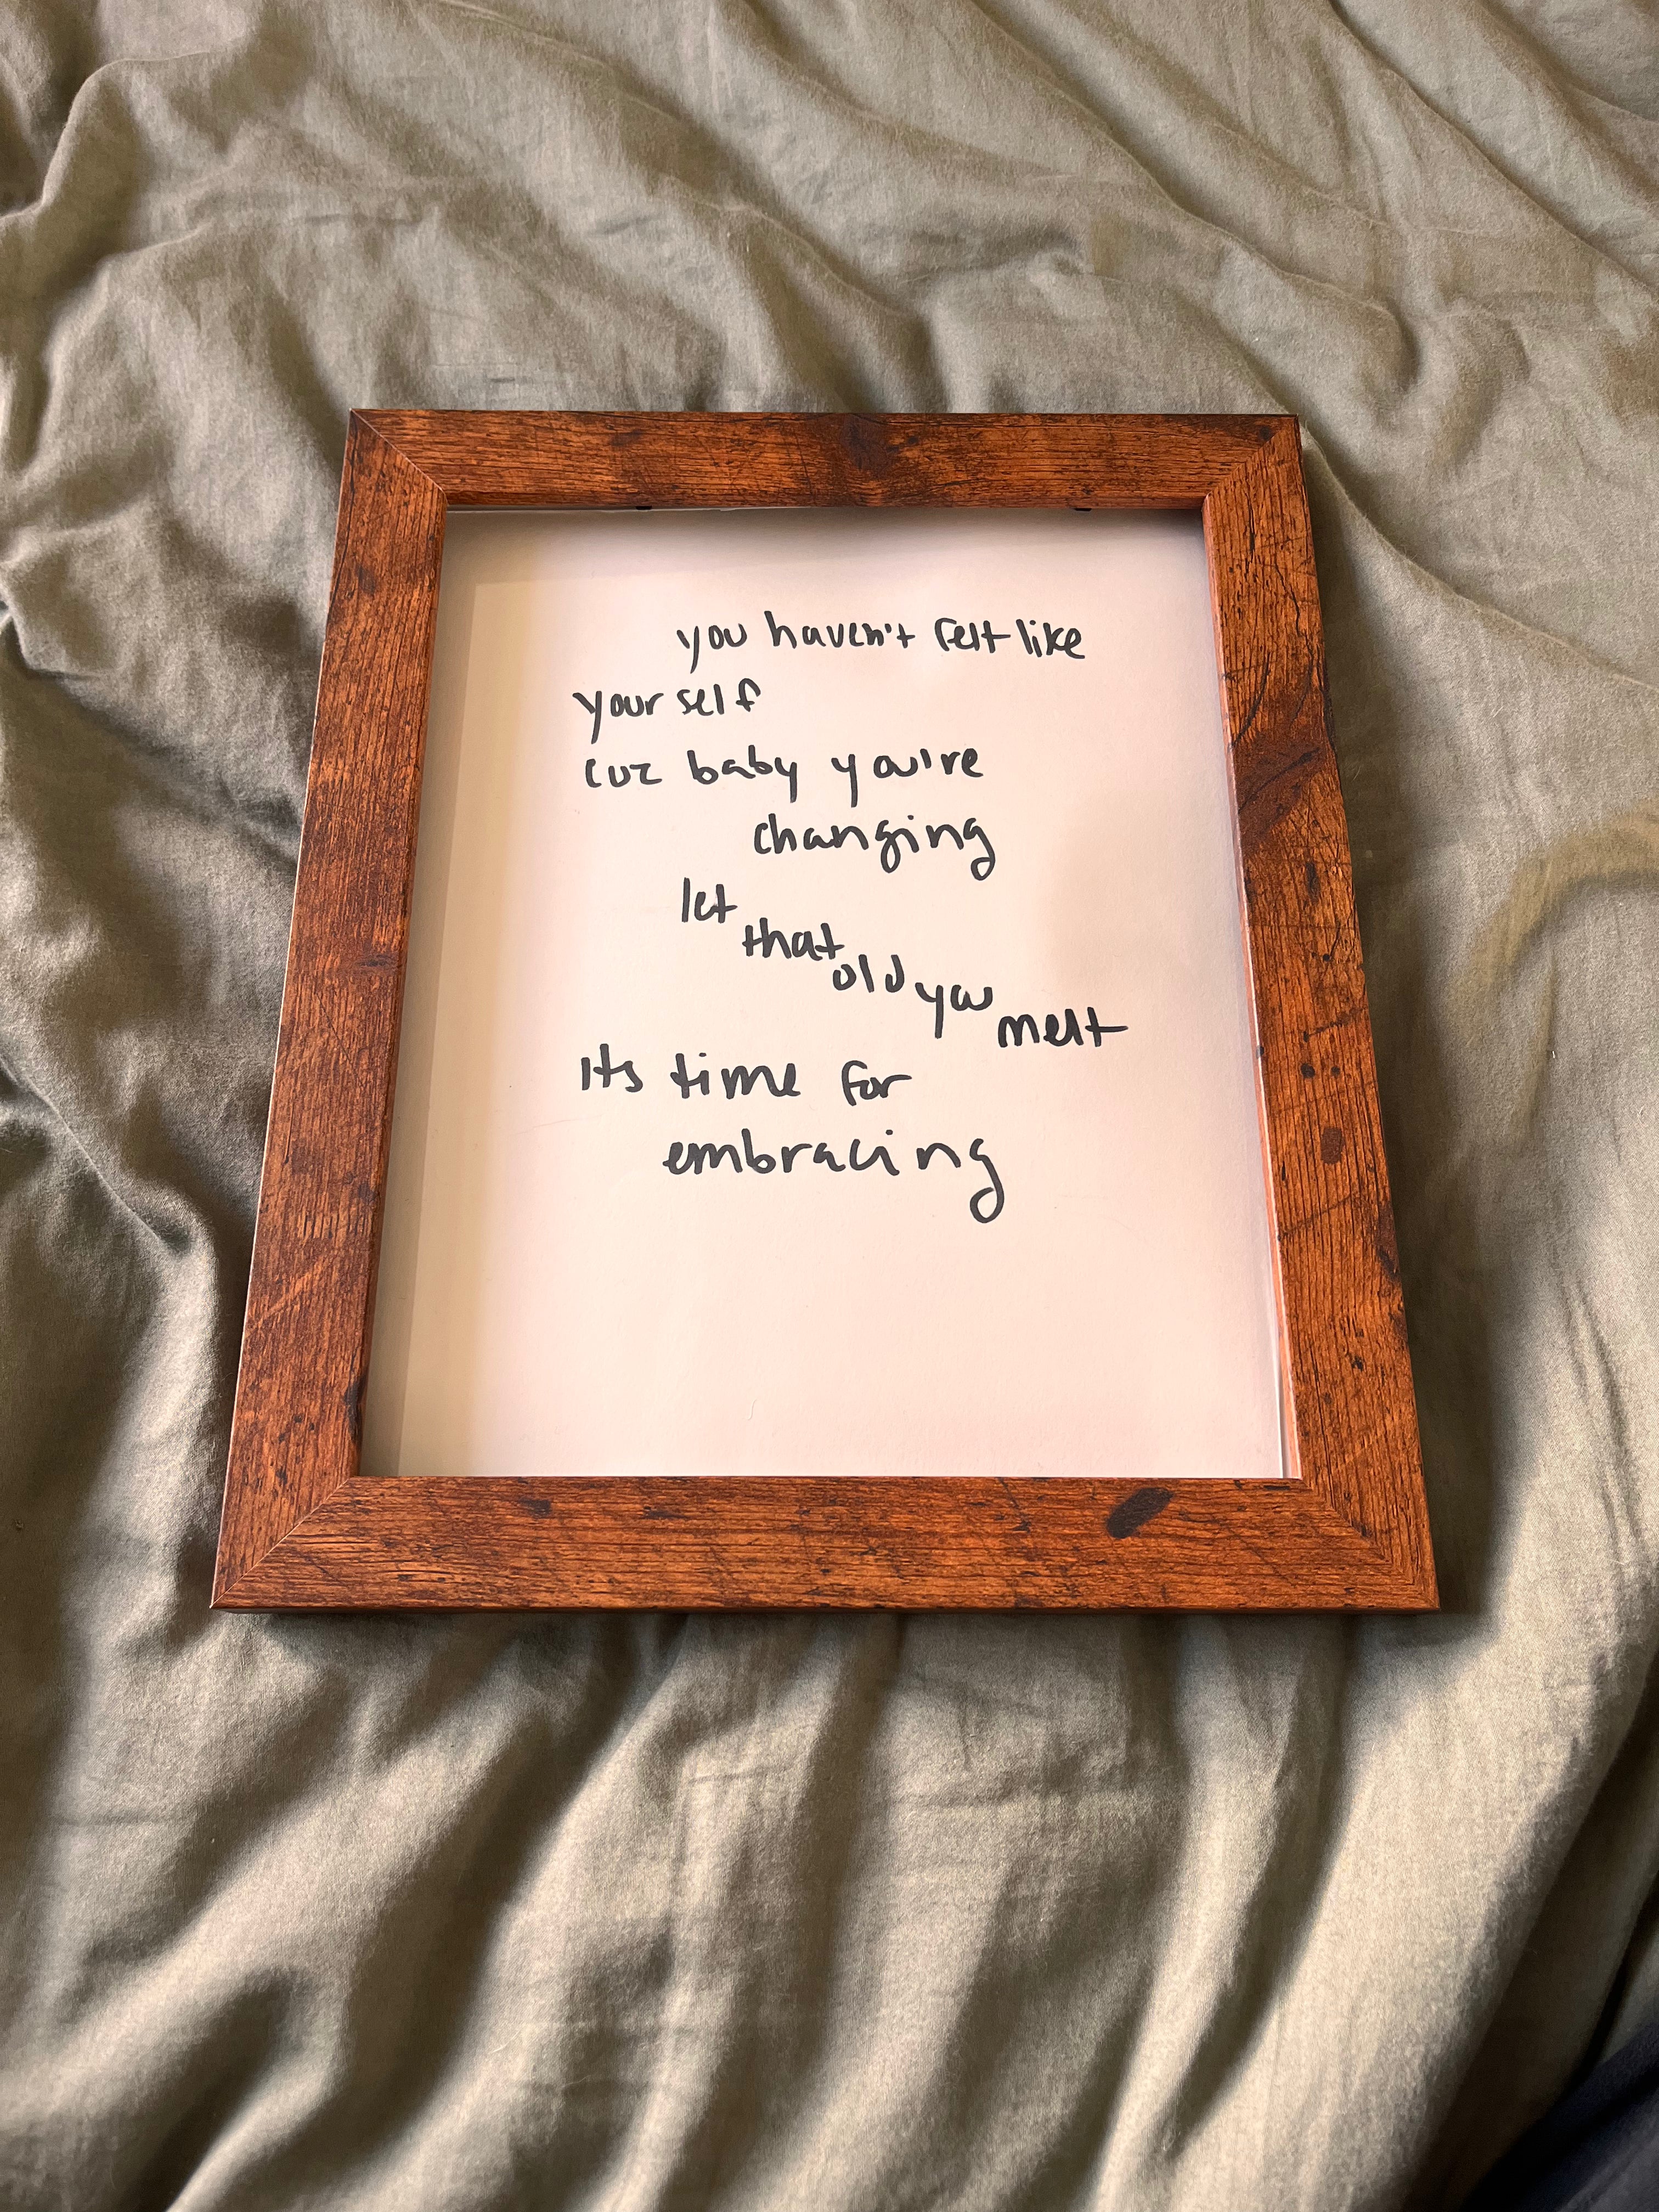 you haven't felt like
yourself
cuz baby you're
changing
let that old you melt
its time for
embracing